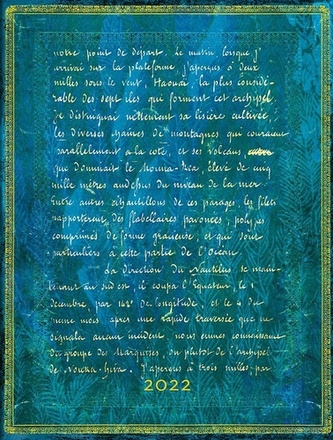 notre point de départ. Le matin lorsque j'
arrivai sur la plateforme j'aperçus à deux
milles sous le vent, Haouaï, la plus considé-
rable des sept iles qui forment cet archipel.
Je distinguai nettement sa lisière cultivée,
les diverses chaînes de montagnes qui couraient
parallèlement à la côte, et ses volcans
que dominait le Mouna-Rea, élevé de cinq
mille mètres audessus du niveau de la mer
Entre autres échantillons de ces parages, les filets
rapportèrent des flabellaires pavonées, polypes
comprimés de forme gracieuse, et qui sont
particuliers à cette partie de l'Océan
La direction du Nautilus se main-
tenant au sud est, il coupa l'Equateur, le 1
décembre, par 142° de longitude, et le 4 du
même mois, après une rapide traversée que ne
signala aucun incident, nous eûmes connaissance
du groupe des Marquises, ou plutôt de l'archipel
de Nouka-hiva. J'aperçus à trois milles, par
2022